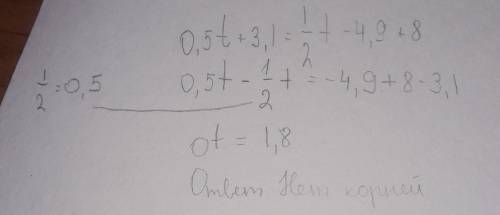 0,5t + 3,1 = 1/2 t - 4,9 + 8
1/2 = 0,5
0,5t - 1/2 t = -4,9 + 8 - 3,1
0t = 1,8
Ответ Нет корней